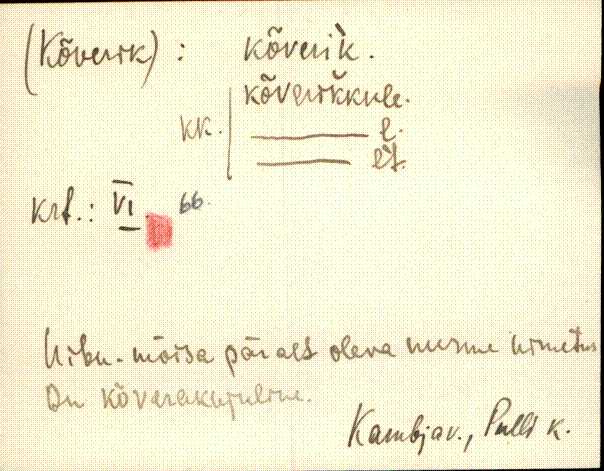 (Kõverik) : kõverìk.
kõverikkule.
kk. l.
lt.
krt.: VI 66.
Uibu-mõisa päralt oleva nurme nimetus
On kõverakujuline.
Kambjav., Pulli k.